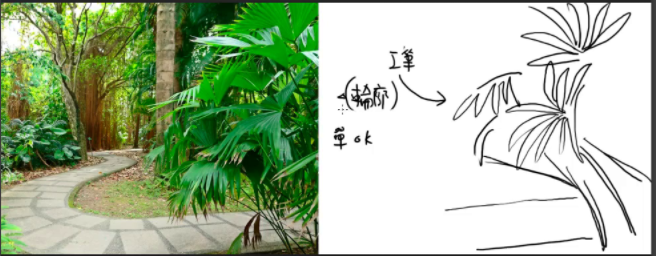 工單
(輪廓)
單 ok